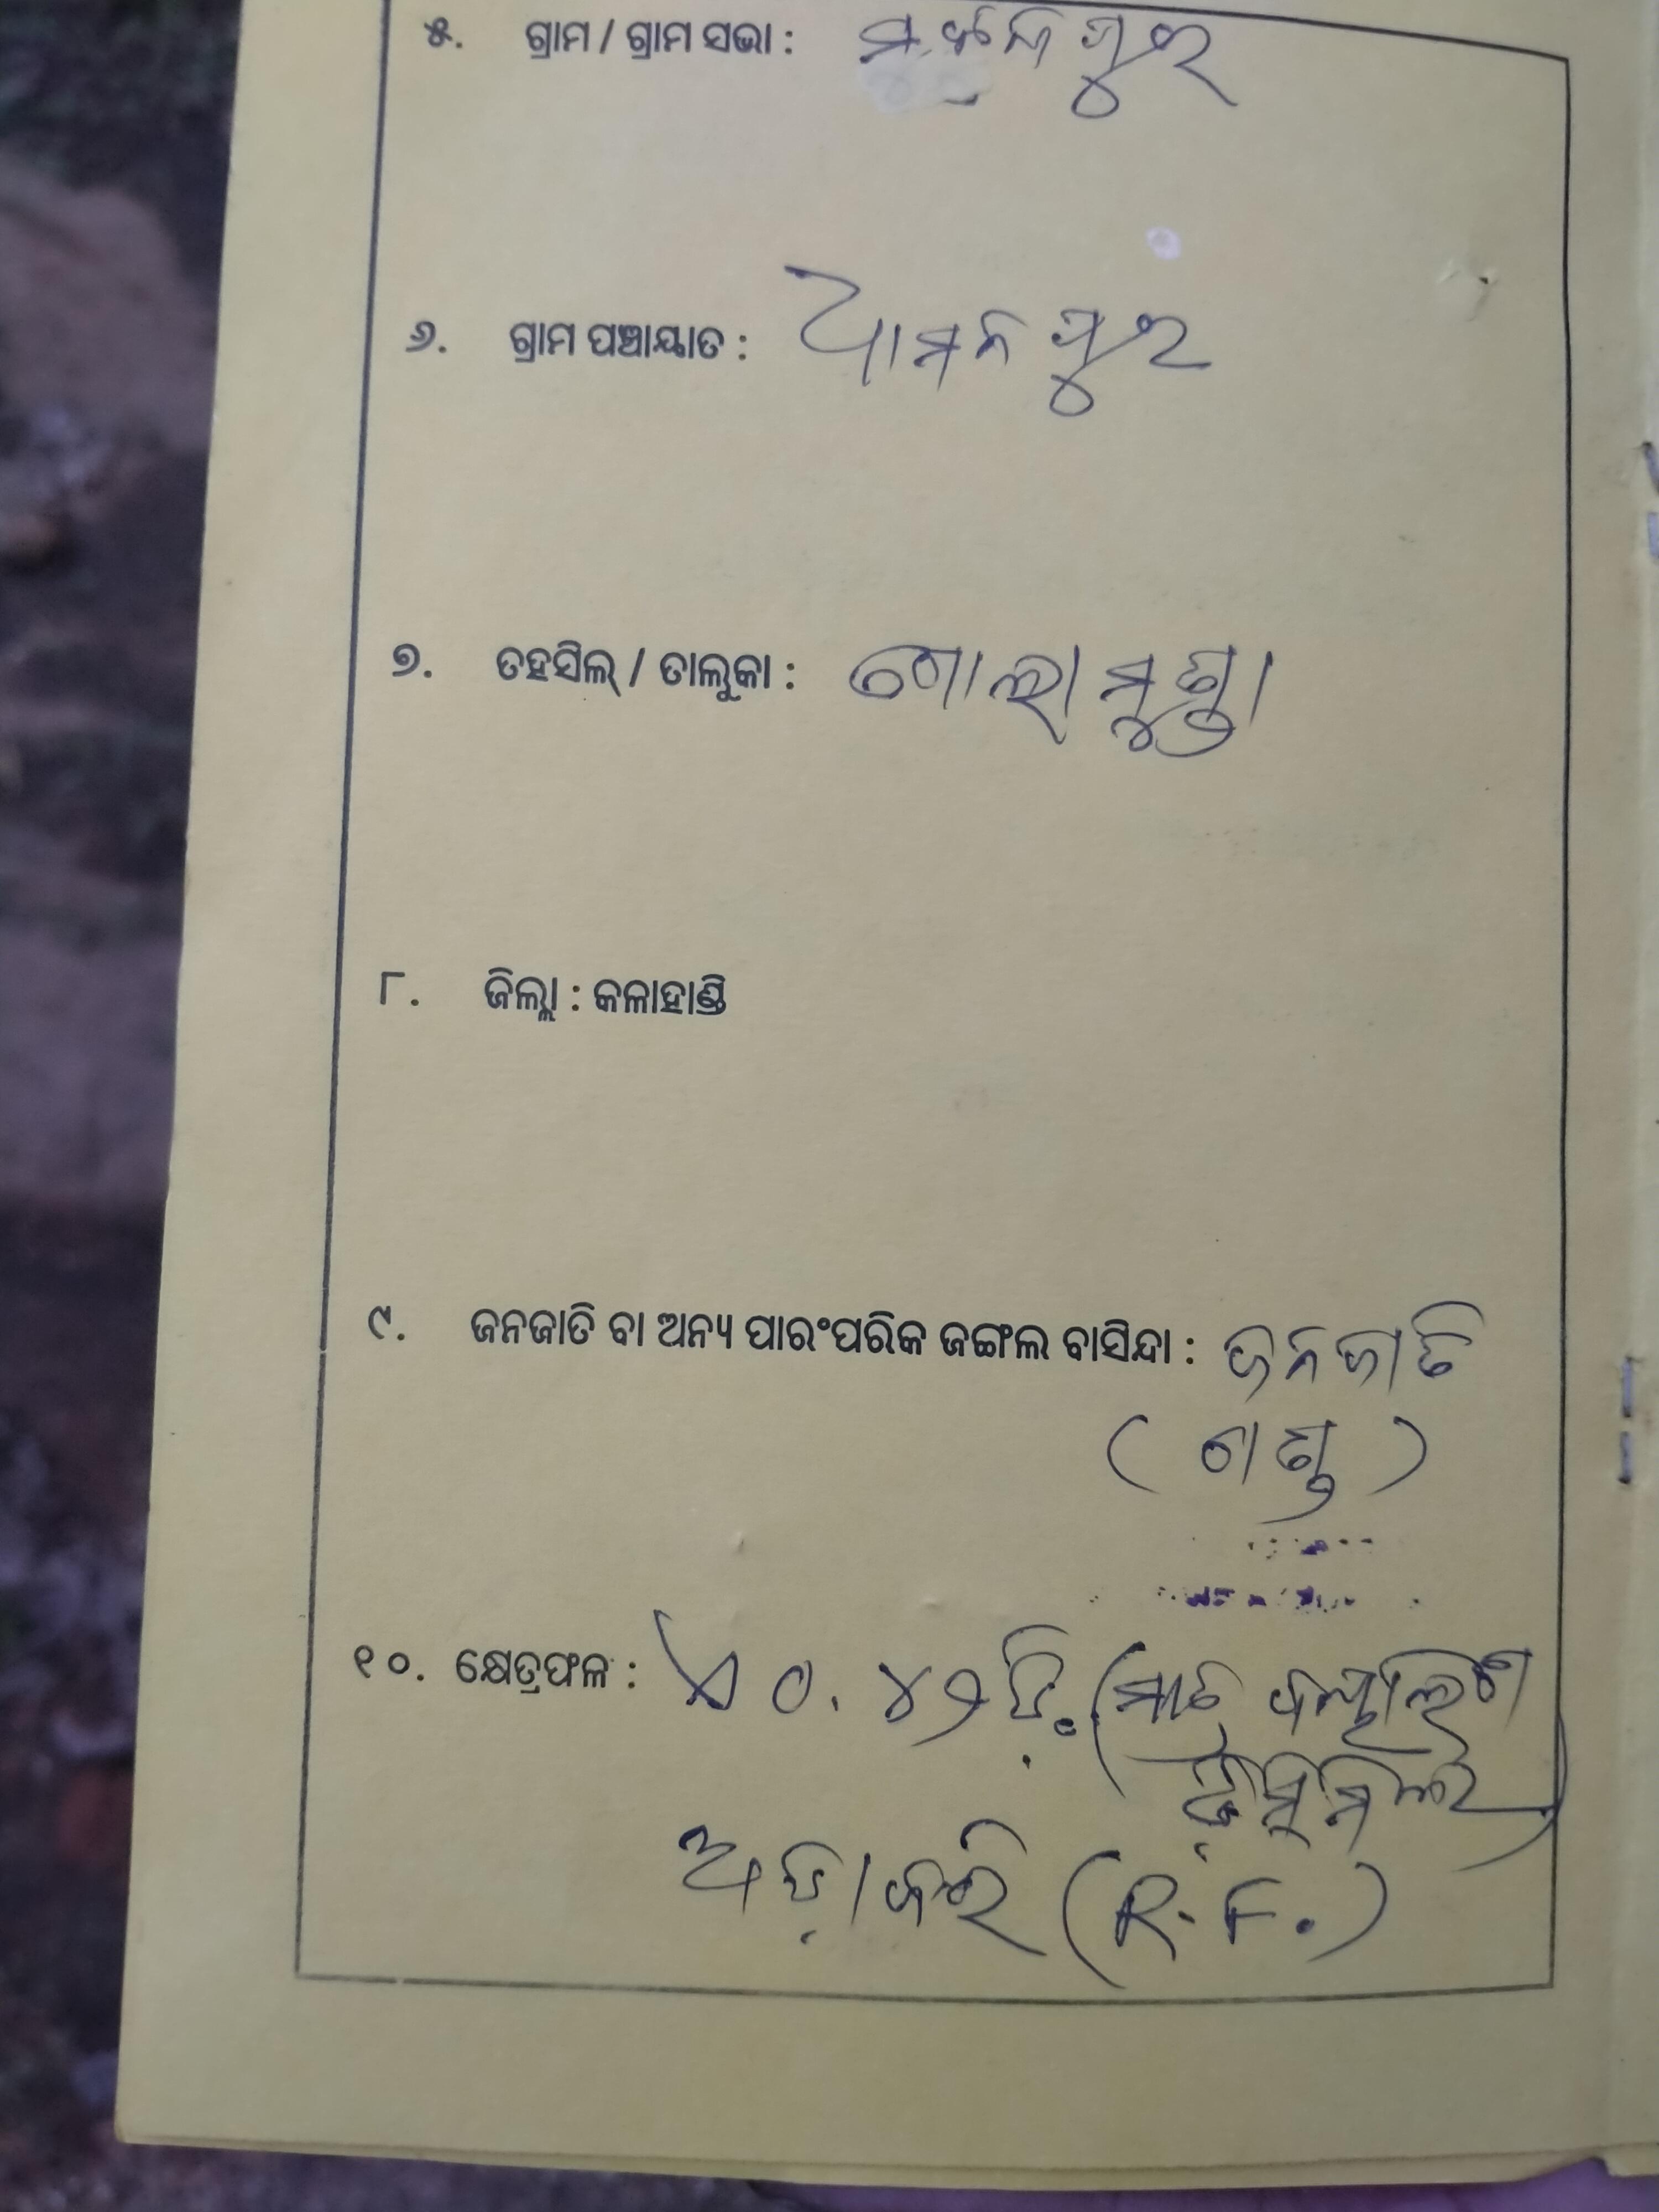 ୫. ଗ୍ରାମ / ଗ୍ରାମ ସଭା :
୬. ଗ୍ରାମ ପଞ୍ଚାୟାତ : ଧାମନପୁର
୭. ତହସିଲ୍ / ତାଲୁକା : ଗୋଲାମୁଣ୍ଡା
୮. ଜିଲ୍ଲା : କଳାହାଣ୍ଡି
୯. ଜନଜାତି ବା ଅନ୍ୟ ପାରଂପରିକ ଜଙ୍ଗଲ ବାସିନ୍ଦା : ଜନଜାତି
(ଗଣ୍ଡ)
୧୦. କ୍ଷେତ୍ରଫଳ : ଏ ୦.୪୨ ଡି. (ମାତ୍ର ବୟାଳିଶ
ଡିସିମିଲ)
(R.F.)